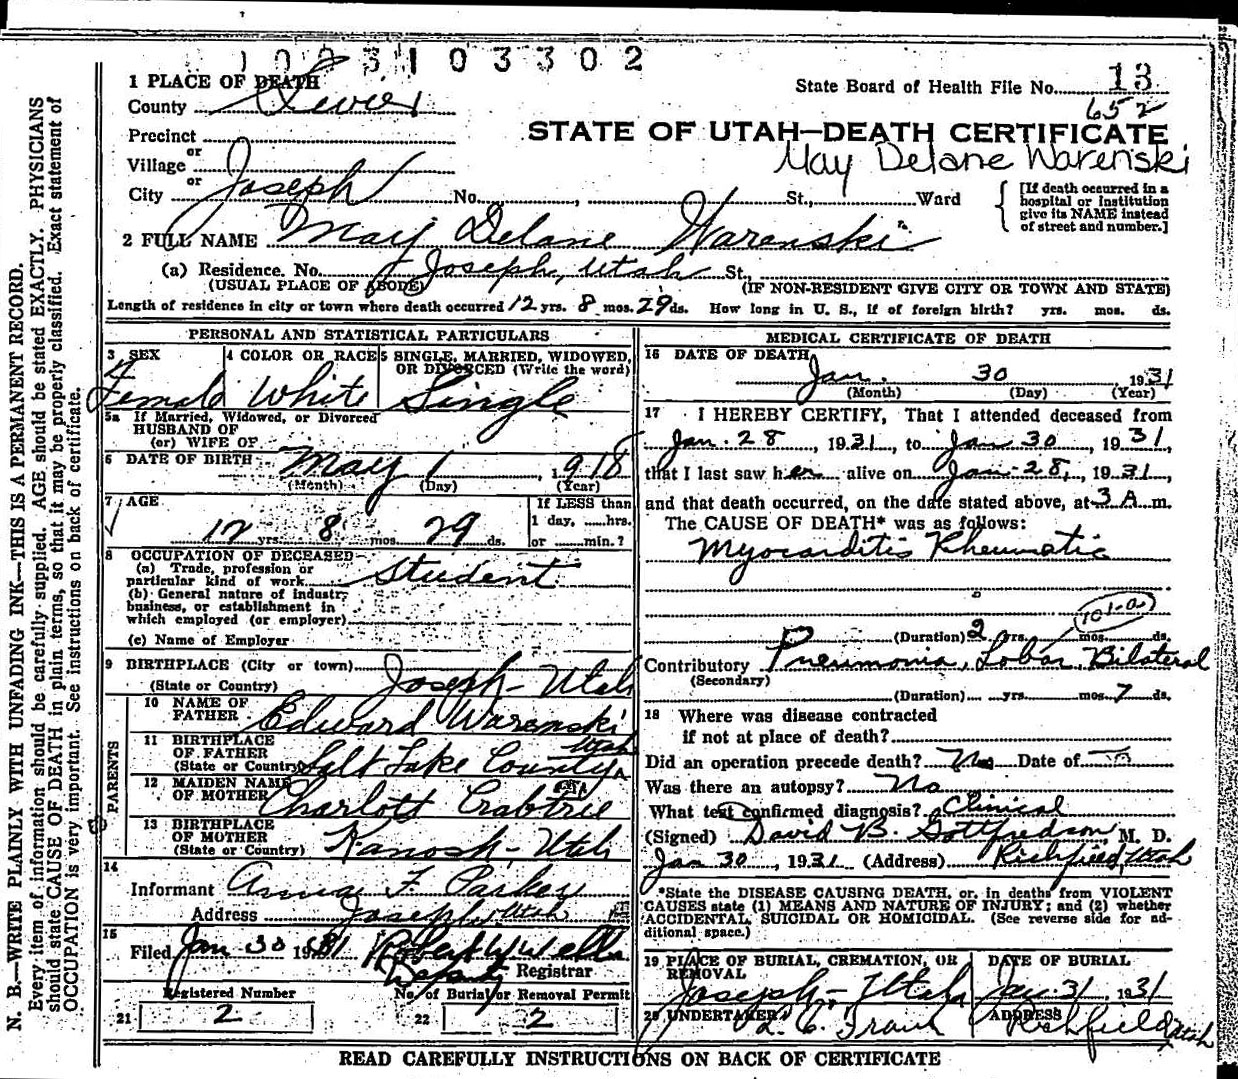 1003103302
1 PLACE OF DEATH
State Board of Health File No. 13
County Sevier
652
Precinct
STATE OF UTAH—DEATH CERTIFICATE
or
Village
May Delane Warenski
or
City Joseph No. , St., Ward
[If death occurred in a hospital or institution give its NAME instead of street and number.]
2 FULL NAME May Delane Warenski
(a) Residence. No. Joseph, Utah St.,
(USUAL PLACE OF ABODE) (IF NON-RESIDENT GIVE CITY OR TOWN AND STATE)
Length of residence in city or town where death occurred 12 yrs. 8 mos. 29 ds. How long in U. S., if of foreign birth? yrs. mos. ds.
PERSONAL AND STATISTICAL PARTICULARS
3 SEX 4 COLOR OR RACE 5 SINGLE, MARRIED, WIDOWED, OR DIVORCED (Write the word)
Female White Single
5a If Married, Widowed, or Divorced
HUSBAND OF
(or) WIFE OF
6 DATE OF BIRTH May 1 1918
(Month) (Day) (Year)
7 AGE If LESS than
12 yrs. 8 mos. 29 ds. 1 day, hrs.
or min.?
8 OCCUPATION OF DECEASED
(a) Trade, profession or
particular kind of work Student
(b) General nature of industry
business, or establishment in
which employed (or employer)
(c) Name of Employer
9 BIRTHPLACE (City or town) Joseph - Utah
(State or Country)
PARENTS
10 NAME OF
FATHER Edward Warenski
11 BIRTHPLACE
OF FATHER Utah
(State or Country) Salt Lake County
12 MAIDEN NAME
OF MOTHER Charlott Crabtree
13 BIRTHPLACE
OF MOTHER
(State or Country) Kanosh, Utah
14
Informant Anna F. Parker
Address Joseph, Utah
15
Filed Jan 30 1931 Robert W Wells
Deputy Registrar
Registered Number No. of Burial or Removal Permit
21 2 22 2
MEDICAL CERTIFICATE OF DEATH
16 DATE OF DEATH
Jan. 30 1931
(Month) (Day) (Year)
17 I HEREBY CERTIFY, That I attended deceased from
Jan. 28, 1931, to Jan 30, 1931,
that I last saw her alive on Jan. 28, 1931,
and that death occurred, on the date stated above, at 3 A m.
The CAUSE OF DEATH* was as follows:
Myocarditis Rheumatic
101-a
(Duration) 2 yrs. mos. ds.
Contributory Pneumonia, Lobar, Bilateral
(Secondary)
(Duration) yrs. mos. 7 ds.
18 Where was disease contracted
if not at place of death?
Did an operation precede death? No Date of
Was there an autopsy? No
What test confirmed diagnosis? Clinical
(Signed) David B. Gottfredson, M. D.
Jan 30, 1931 (Address) Richfield, Utah
*State the DISEASE CAUSING DEATH, or, in deaths from VIOLENT
CAUSES state (1) MEANS AND NATURE OF INJURY; and (2) whether
ACCIDENTAL, SUICIDAL OR HOMICIDAL. (See reverse side for ad-
ditional space.)
19 PLACE OF BURIAL, CREMATION, OR DATE OF BURIAL
REMOVAL
Joseph, Utah Jan. 31, 1931
20 UNDERTAKER ADDRESS
Richfield, Utah
READ CAREFULLY INSTRUCTIONS ON BACK OF CERTIFICATE
N. B.—WRITE PLAINLY WITH UNFADING INK—THIS IS A PERMANENT RECORD.
Every item of information should be carefully supplied. AGE should be stated EXACTLY. PHYSICIANS
should state CAUSE OF DEATH in plain terms, so that it may be properly classified. Exact statement of
OCCUPATION is very important. See instructions on back of certificate.